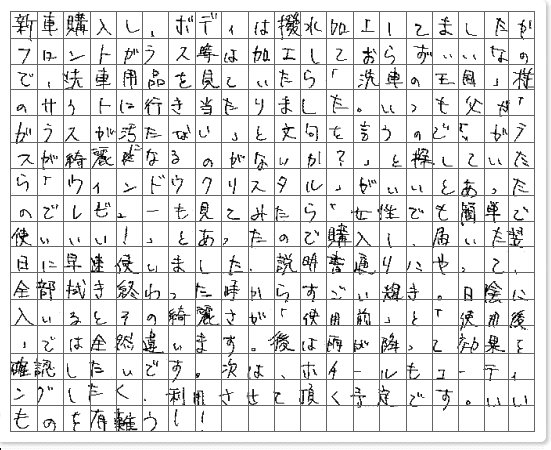 新車購入し、ボディは撥水加工してましたが
フロントガラス等は加工しておらずいいなの
で、洗車用品を見ていたら「洗車の王国」様
のサイトに行き当たりました。いつも父が「
ガラスが汚たない」と文句を言うので「ガラ
スが綺麗になるのがないか?」と探していた
ら「ウィンドウクリスタル」がいいとあった
のでレビューも見てみたら「女性でも簡単で
使いいい!」とあったので購入し、届いた翌
日に早速使いました。説明書通りにやって、
全部拭き終わった時からすごい輝き。日陰に
入いるとその綺麗さが「使用前」と「使用後
」では全然違います。後は雨が降って効果を
確認したいです。次は、ホイールもコーティ
ングしたく、利用させて頂く予定です。いい
ものを有難う!!